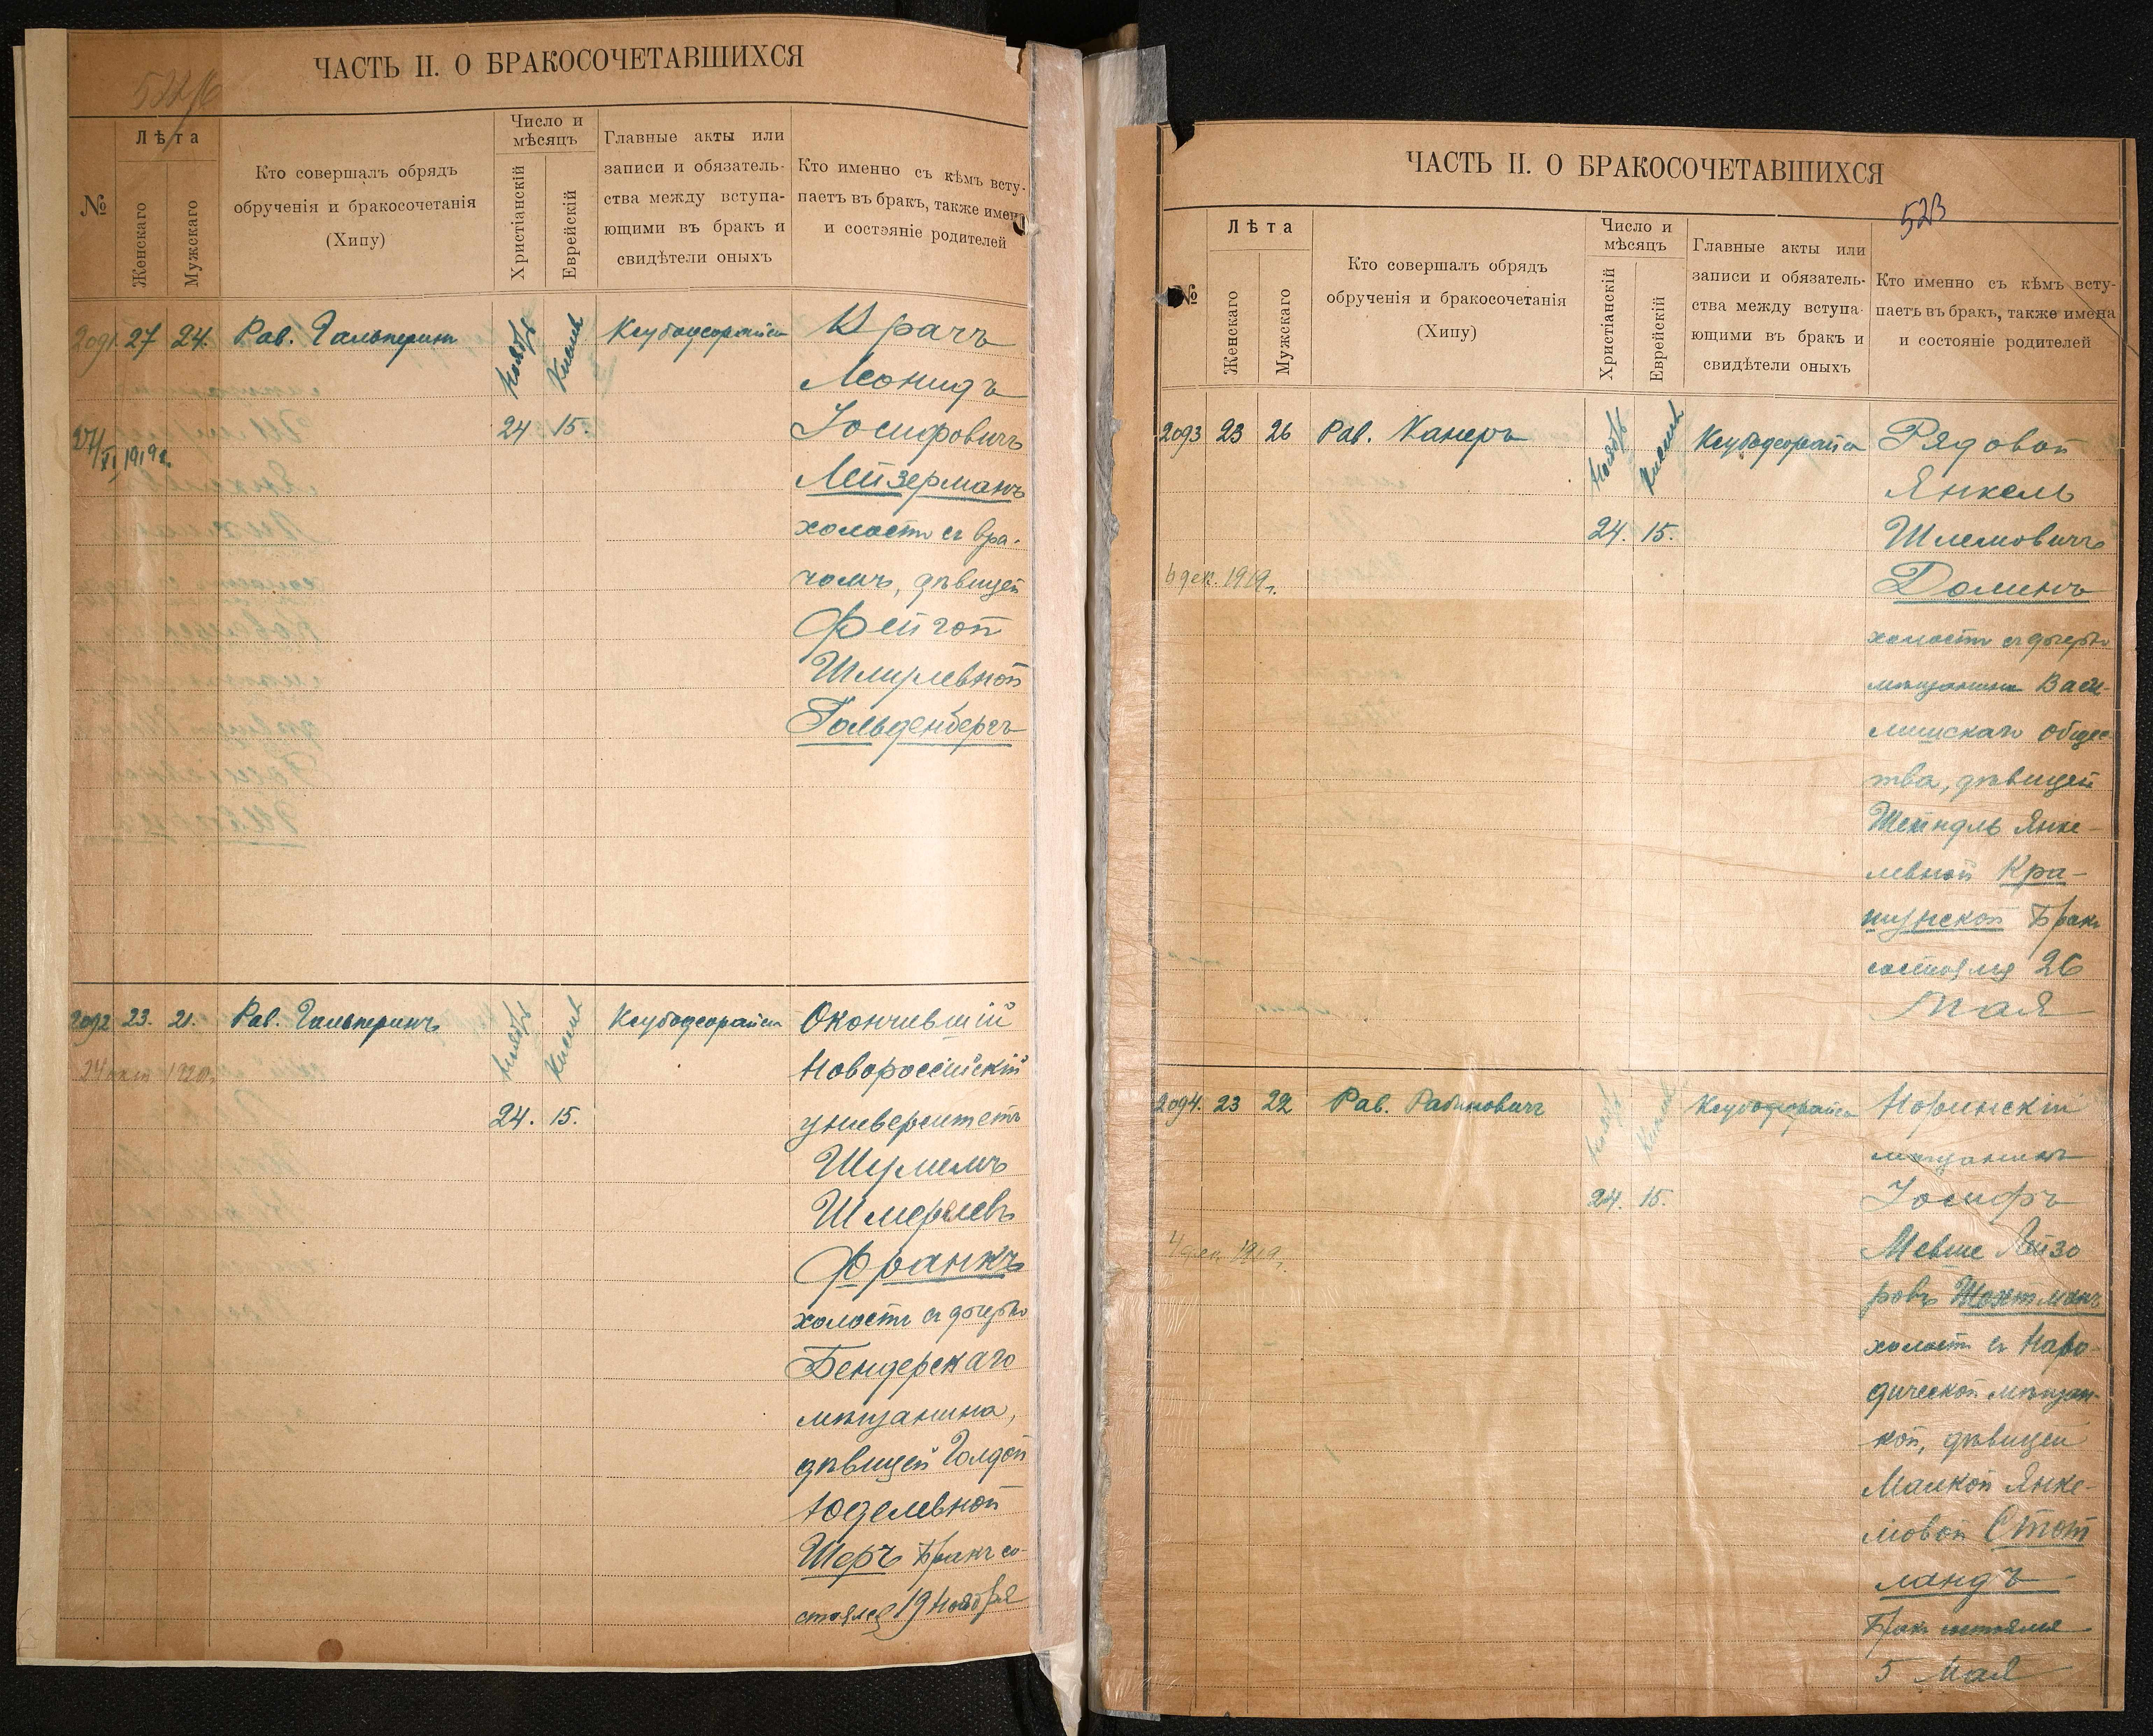 ЧАСТЬ II. О БРАКОСОЧЕТАВШИХСЯ
№
Лѣта
Женскаго
Мужскаго
Кто совершалъ обрядъ
обрученія и бракосочетанія
(Хипу)
Число и
мѣсяцъ
Христіанскій
Еврейскій
Главные акты или
записи и обязатель-
ства между вступа-
ющими въ бракъ и
свидѣтели оныхъ
Кто именно съ кѣмъ всту-
паетъ въ бракъ, также имена
и состэяніе родителей
2091. 27 24. Рав. Гальперинъ Ноябрь Кислев Ксубодеорайса Врачъ
Леонидъ
24 15. Іосифовичъ
27/XI 1919 г.
Лейзерманъ
холостъ съ вра-
чомъ, дѣвицей
Фейгой
Шмулевной
Гольденбергъ
2092 23. 21. Рав. Гальперинъ Ноябрь Кислев Ксубодеорайса Окончившій
Новороссійскій
24 окт 1920 г.
24. 15. университетъ
Шулимъ
Шмерелевъ
Франкъ
холостъ съ дочерью
Бендерскаго
мѣщанина,
дѣвицей Голдой
Юделевной
Шеръ Бракъ со-
стоялся 19 Ноября
ЧАСТЬ II. О БРАКОСОЧЕТАВШИХСЯ
523
№
Лѣта
Женскаго
Мужскаго
Кто совершалъ обрядъ
обрученія и бракосочетанія
(Хипу)
Число и
мѣсяцъ
Христіанскій
Еврейскій
Главные акты или
записи и обязатель-
ства между вступа-
ющими въ бракъ и
свидѣтели оныхъ
Кто именно съ кѣмъ всту-
паетъ въ бракъ, также имена
и состояніе родителей
2093 23 26 Рав. Канеръ Ноябрь Кислев Ксубодеорайса Рядовой
Янкель
24. 15. Шлемовичъ
6 дек. 1919 г. Долинъ
холостъ съ дочерью
мѣщанина Васи-
лишскаго общес-
тва, дѣвицей
Шейндль Янке-
левной Кра-
шунской Бракъ
состоялся 26
Мая
2094. 23 22 Рав. Рабиновичъ Ноябрь Кислев Ксубодеорайса Норинскій
мѣщанинъ
24. 15. Іосифъ
4 дек. 1919 г. Мевше Лейзо
ровъ Шохтманъ
холостъ съ Наро-
дической мѣщан-
кой, дѣвицей
Малкой Янке-
мовой Стот
ландъ
Бракъ состоялся
5 Мая